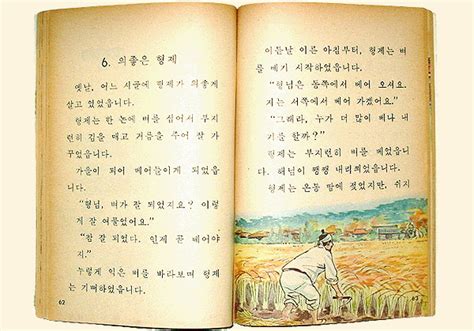 6. 의좋은 형제
옛날, 어느 시골에 형제가 의좋게
살고 있었읍니다.
형제는 한 논에 벼를 심어서 부지
런히 김을 매고 거름을 주어 잘 가
꾸었읍니다.
가을이 되어 베어들이게 되었읍
니다.
“형님, 벼가 잘 되었지요? 이렇
게 잘 여물었어요.”
“참 잘 되었다. 인제 곧 베어야
지.”
누렇게 익은 벼를 바라보며 형제
는 기뻐하였읍니다.
62
이튿날 이른 아침부터, 형제는 벼
를 베기 시작하였읍니다.
“형님은 동쪽에서 베어 오셔요.
저는 서쪽에서 베어 가겠어요.”
“그래라, 누가 더 많이 베나 내
기를 할까?”
형제는 부지런히 벼를 베었읍니
다. 해님이 쨍쨍 내리쬐었읍니다.
형제는 온통 땀에 젖었지만, 쉬지
63